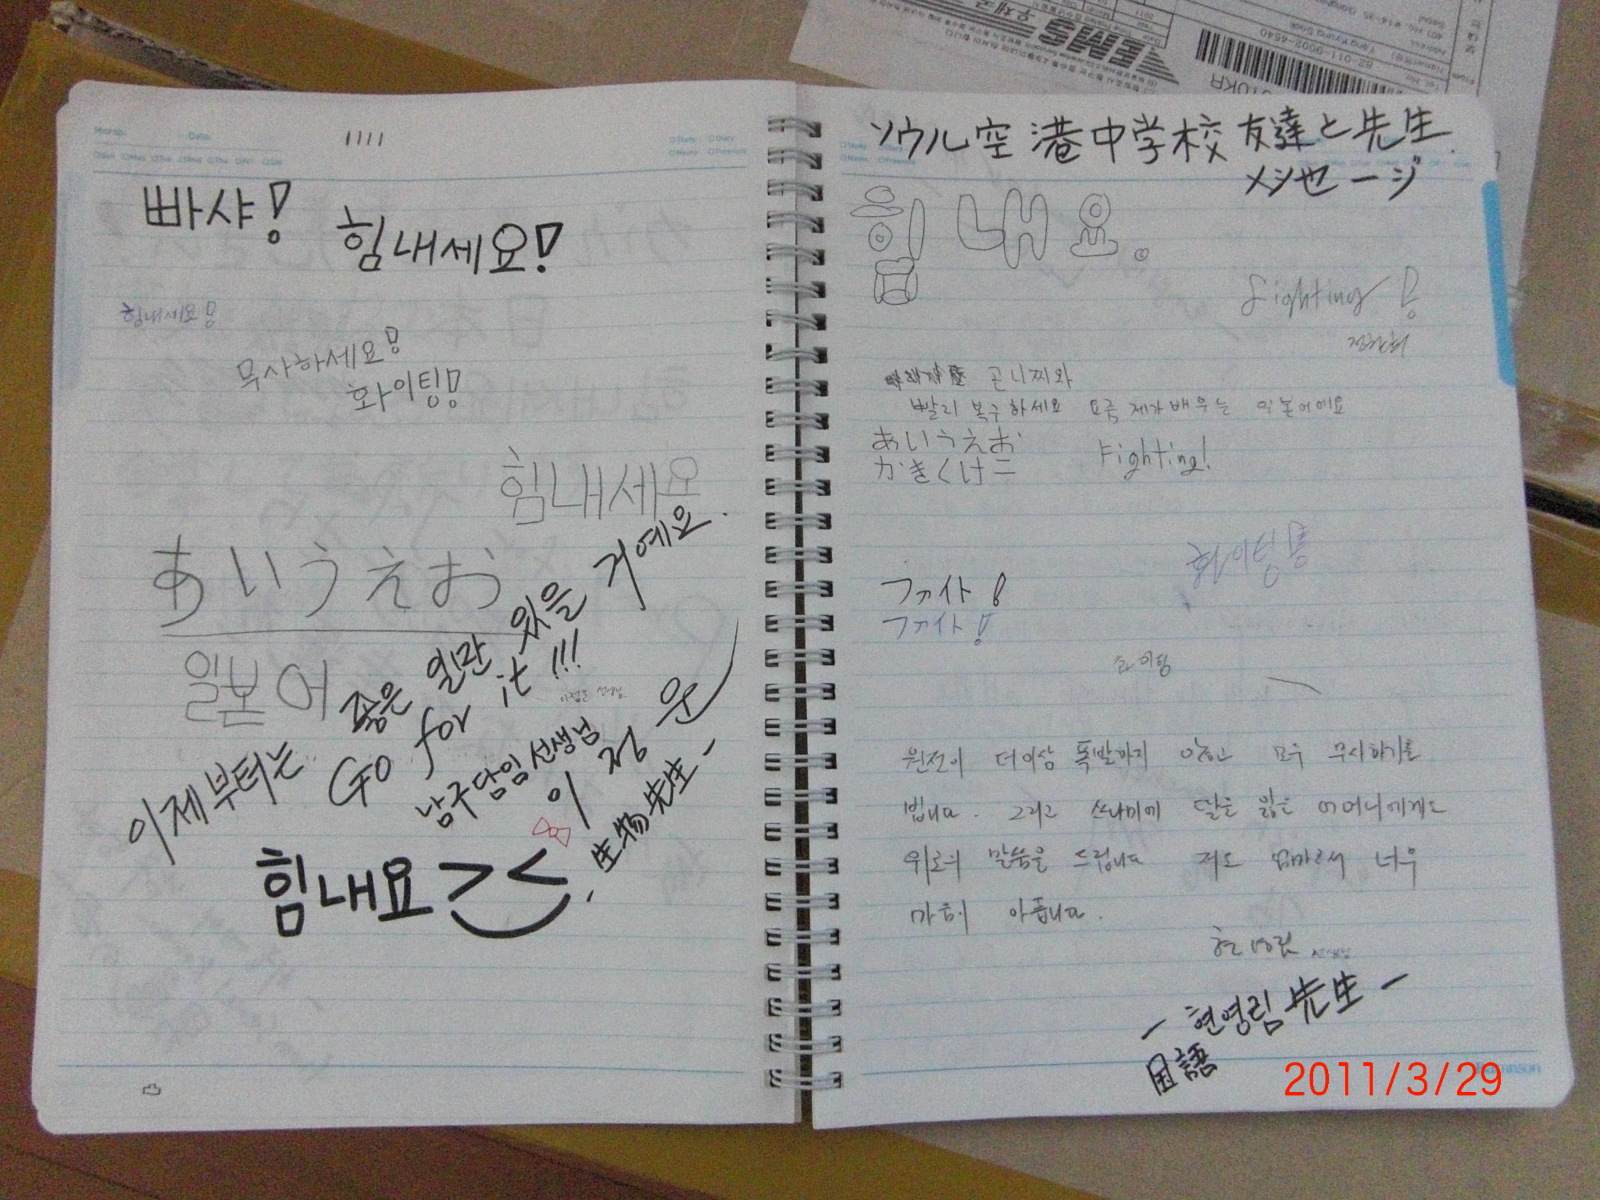 빠샤!
힘내세요!
힘내세요!
무사하세요!
화이팅!
힘내세요
あいうえお
일본어
이제부터는 좋은 일만 있을 거예요.
Go for it!!!
남구담임선생님
이정운
- 生物先生 -
힘내요
ソウル空港中学校 友達と先生
メッセージ
힘내요.
fighting!
곤니찌와
빨리 복구하세요 요즘 제가 배우는 일본어예요
あいうえお
かきくけこ
Fighting!
화이팅
ㄱㄲ사!
ㄱㄲ사!
화이팅
원전이 더이상 폭발하지 않고 모두 무사하기를
빕니다. 그리고 쓰나미에 딸을 잃은 어머니에게도
위로의 말씀을 드립니다 저도 엄마로서 너무
마음이 아픕니다.
현영림 선생님
- 현영림 先生 -
国語
2011/3/29
EMS
우체국